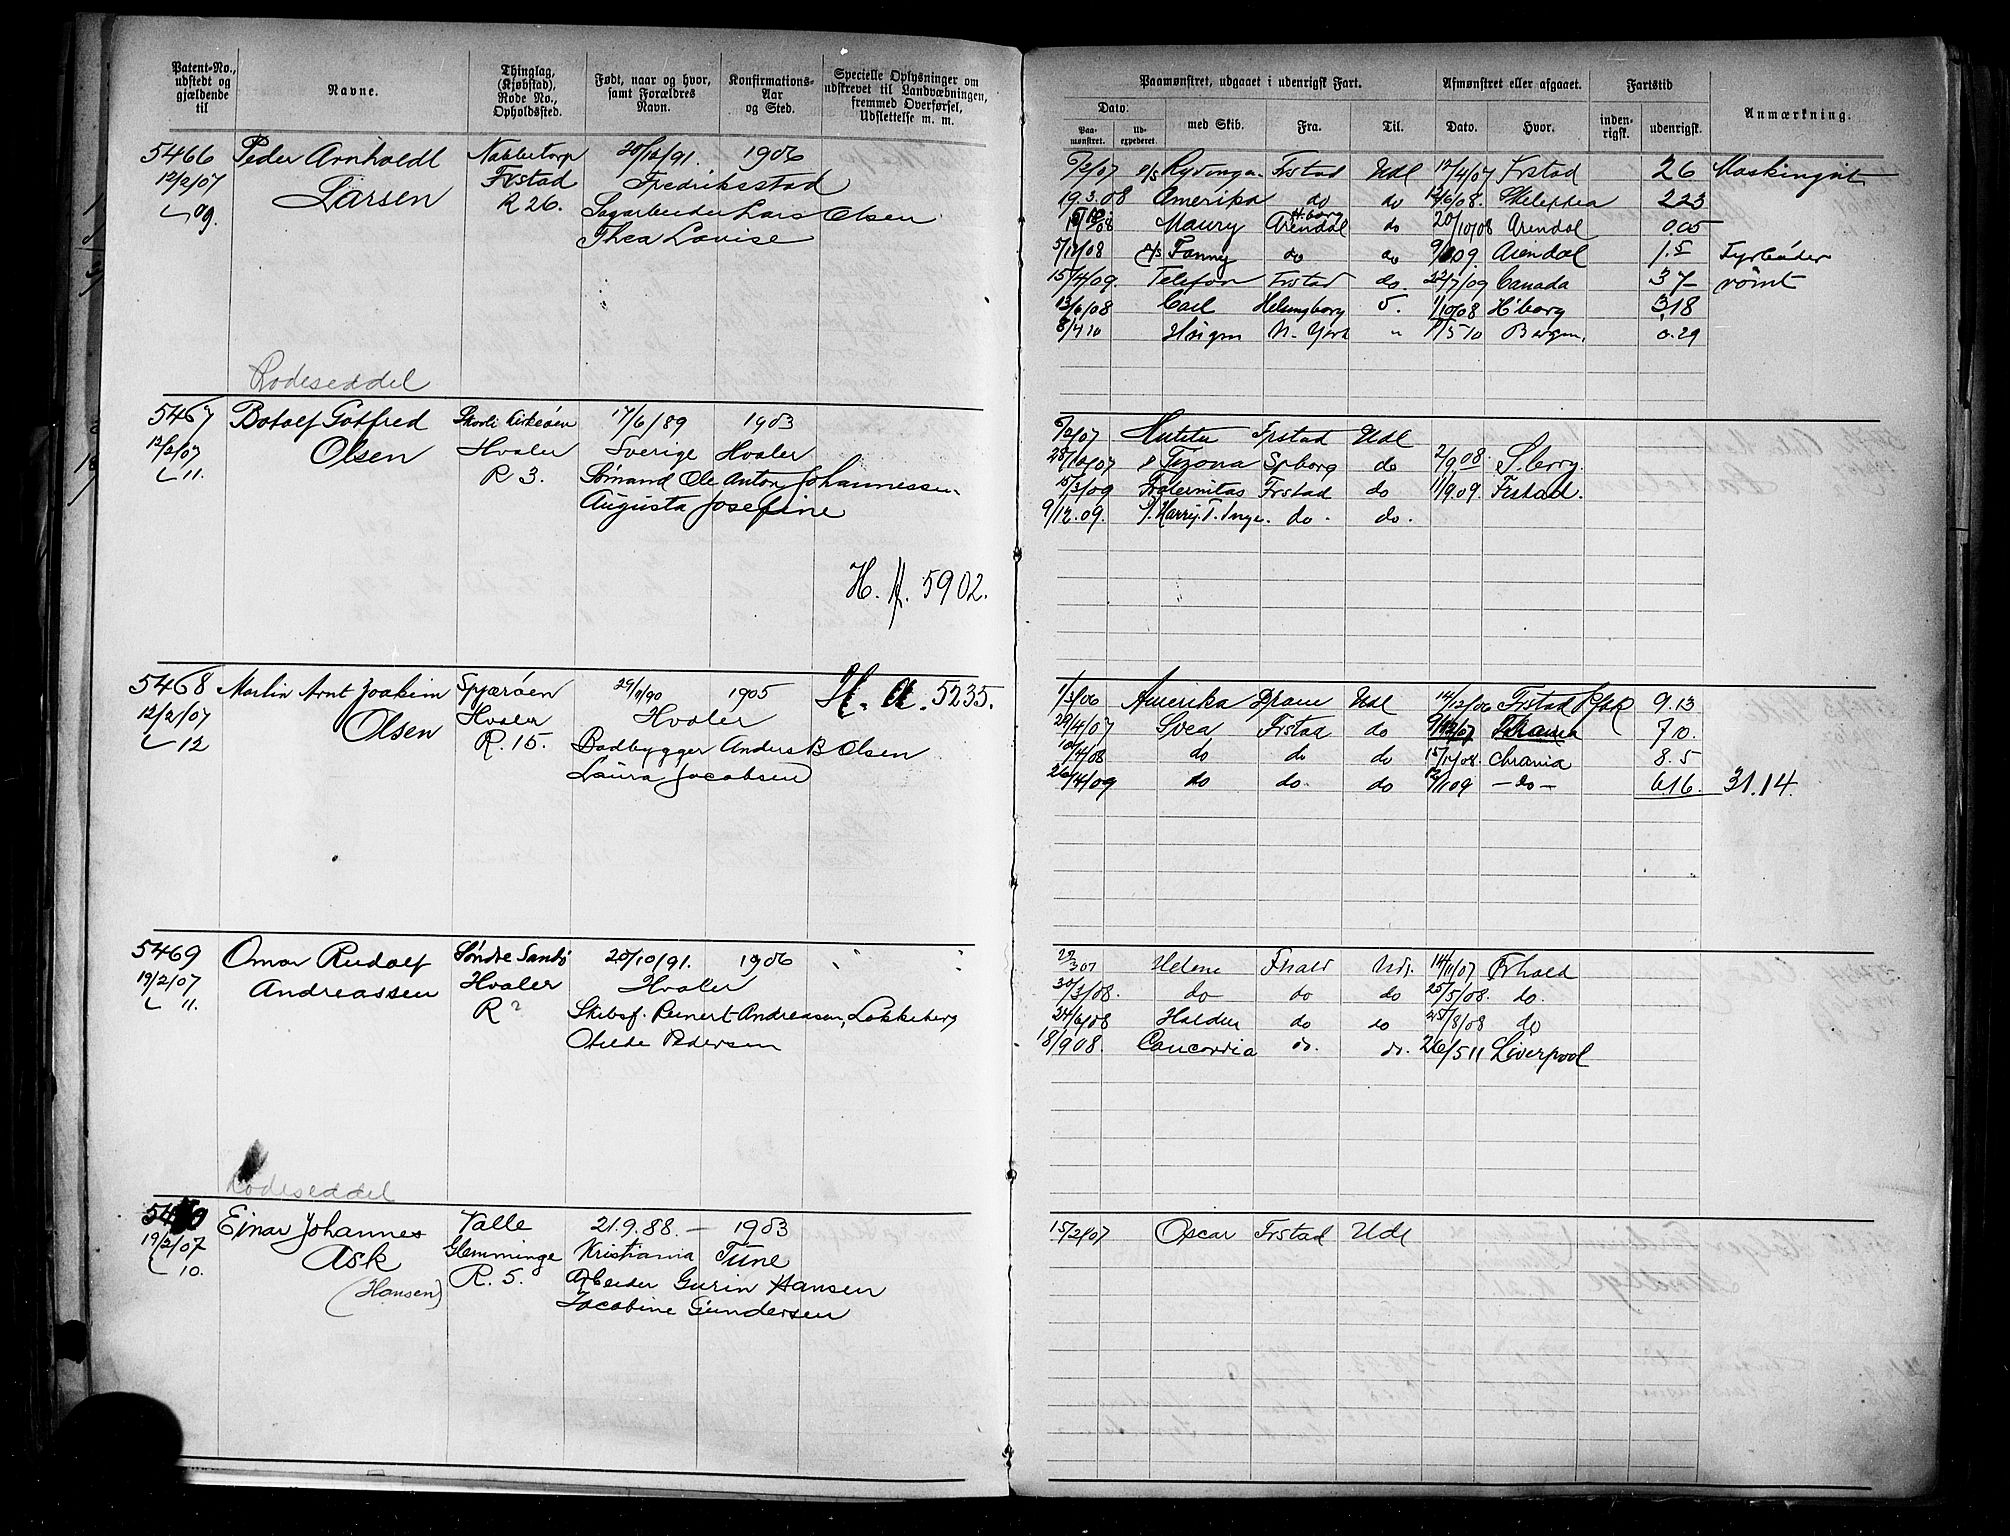 Patent-No., udstedt og gjældende til
Navne.
Thinglag, (Kjøbstad), Rode No., Opholdssted.
Født, naar og hvor, samt Forældres Navn.
Konfirmations-Aar og Sted.
Specielle Oplysninger om udskrevet til Landvæbningen, fremmed Overførsel, Udslettelse m. m.
5466 Peder Arnholdt Nabbetorp 20/12/91. 1906
12/2/07 Larsen Frstad Fredriksstad
09. R 26. Sagarbeider Lars Olsen
Thea Lovise
Rodeseddel
5467 Botolf Gotfred Kirkeøen 17/6/89 1903
12/2/07 Olsen Hvaler Sverige Hvaler
11. R 3. Sømand Ole Anton Johannessen
Augusta Josefine
H. A. 5902.
5468 Martin Arnt Joakim Spjærøen 29/11/90 1905 H. a. 5235.
12/2/07 Olsen Hvaler Hvaler
12 R. 15. Baadbygger Anders B Olsen
Laura Jacobsen
5469 Omar Rudolf Søndre Sandø 20/10/91. 1906
19/2/07 Andreassen Hvaler Hvaler
11. R ? Skibsf. Reinert Andreasen, Løkkeberg
Pedersen
Rodeseddel
5470 Einar Johannes Valle 21.9.88. – 1903
19/2/07 Ask Glemminge Kristiania Tune
10. (Hansen) R. 5. Arbeider Gurin Hansen
Jacobine Gundersen
Paamønstret, udgaaet i udenrigsk Fart.
Afmønstret eller afgaaet.
Fartstid
Anmærkning.
Dato.
Paa-mønstret.
Ud-expederet.
med Skib.
Fra.
Til.
Dato.
Hvor.
inden-rigsk.
udenrigsk.
6/2/07 D/S Rydingen Frstad Udl 12/4/07 Frstad 26 Maskingut
19.3.08 Amerika do do 12/6/08. Skeleftea 2.23
H.borg
Maury Arendal do 20/10/08 Arendal 0.05
5/11/08 D/S Fanny do do Arendal 1.5 Fyrbøder
15/4/09. Telefon Frstad do. 22/7/09 Canada 37 rømt
13/6/08 Carl Helsingborg U. 1/10/08 H'borg 318
8/4 10 N. York " Bergen. 0.29
6/2/07 Frstad Udl
28/10/07 Tizona Spborg do 2/9.08. S.berg.
15/3/09 Fraternitas Frstad do 11/9.09. Frstad.
9/12.09. Harry. T. Inge. do. do.
1/3/06 Amerika Dram Udl 14/12/06 Frstad 9.13
29/4/07 Svea Frstad do 7.0.
10/4/08 do do do 15/12/08. Chrania 8.5
26/4/09 do do. do 12/11 09 – do – 6.16. 31.14.
22/3 07 Helene Fhald Udl. 14/11/07 Frhald
30/3/08. do do do 25/5/08. do.
24/6/08 Halden do do 25/8/08 do
18/9 08. Concordia do. do. 26/5 11 Liverpool
15/2/07 Oscar Frstad Udl